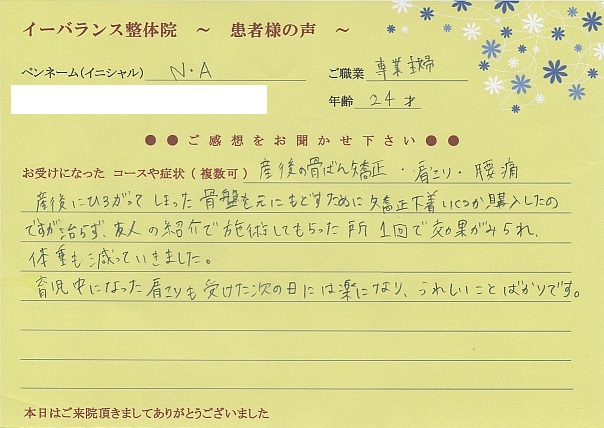 イーバランス整体院 ～ 患者様の声 ～
ペンネーム(イニシャル) N・A ご職業 専業主婦
年齢 24才
●●ご感想をお聞かせ下さい●●
お受けになった コースや症状(複数可) 産後の骨ばん矯正・肩こり・腰痛
産後にひろがってしまった骨盤を元にもどすために矯正下着いくつか購入したの
ですが治らず、友人の紹介で施術してもらった所1回で効果がみられ、
体重も減っていきました。
育児中になった肩こりも受けた次の日には楽になり、うれしいことばかりです。
本日はご来院頂きましてありがとうございました